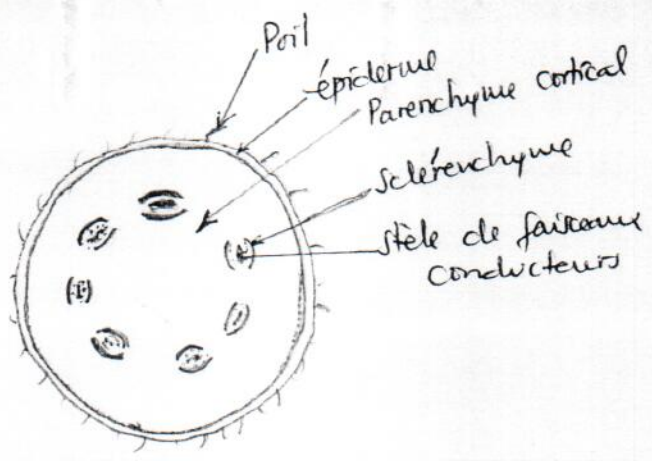 Poil
épiderme
Parenchyme cortical
sclérenchyme
stèle de faisceaux
conducteurs